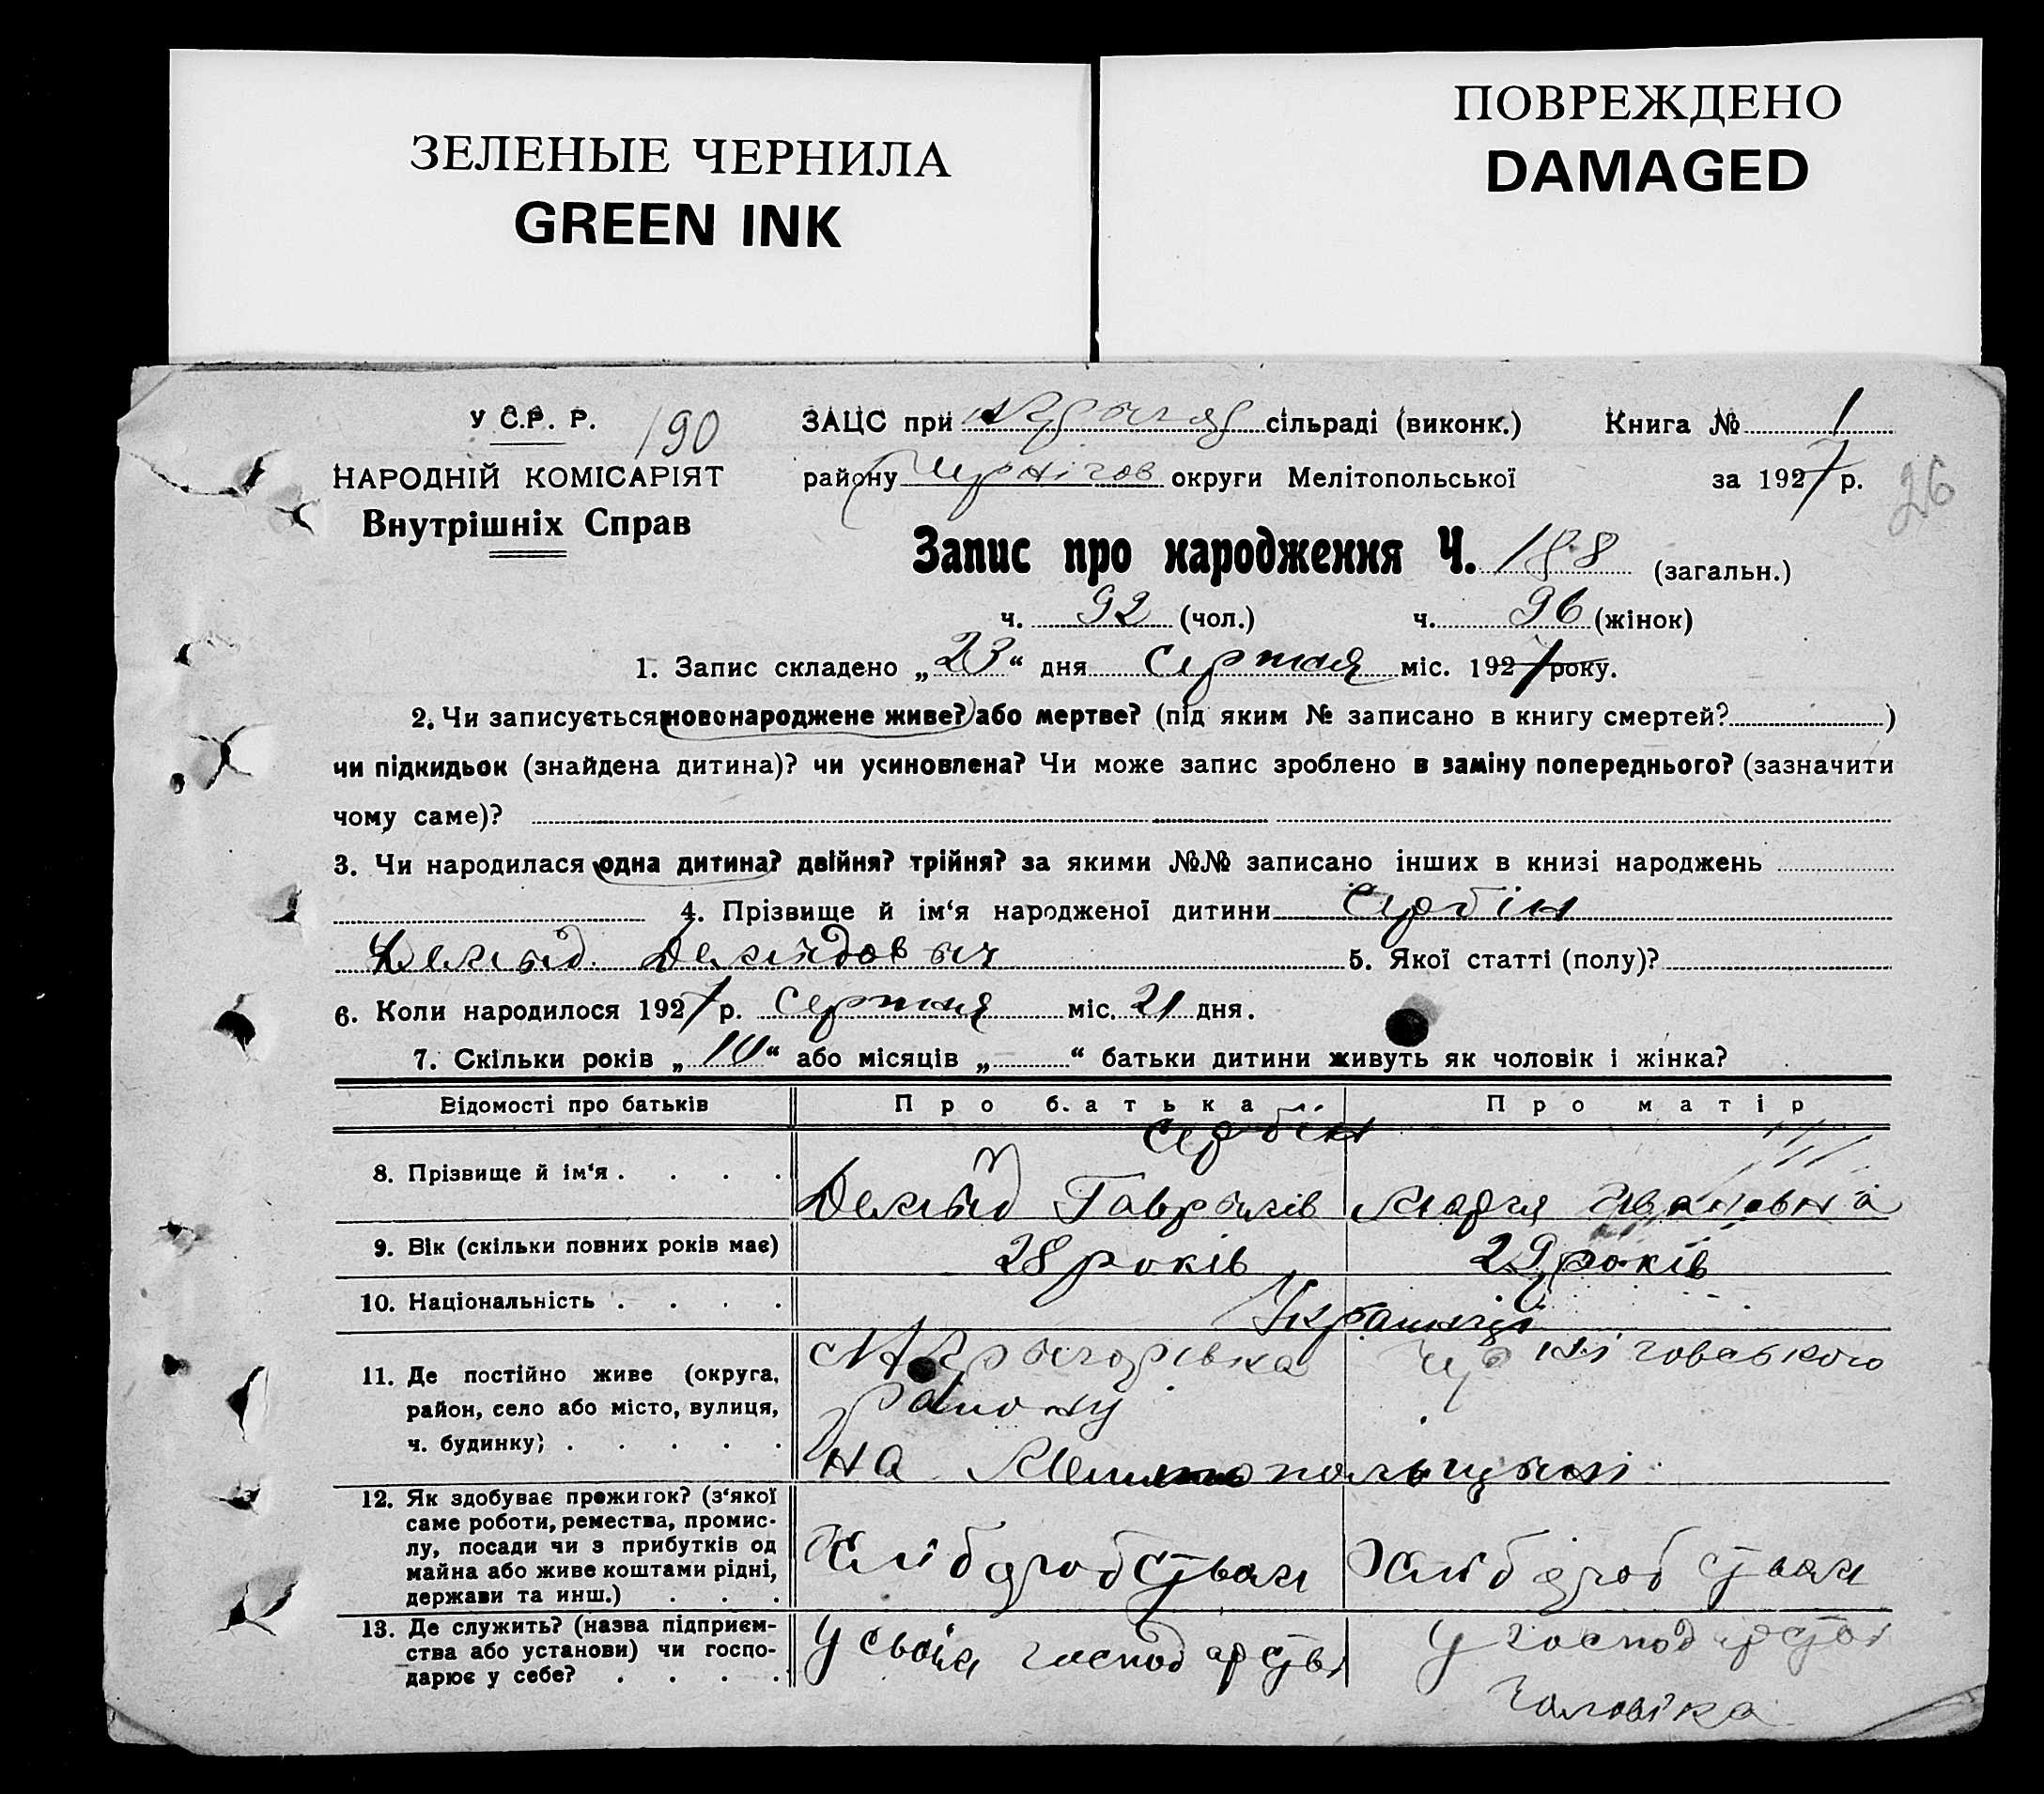 ЗЕЛЕНЫЕ ЧЕРНИЛА
GREEN INK
ПОВРЕЖДЕНО
DAMAGED
У С.Р. Р. 190 ЗАЦС при сільраді (виконк.) Книга № 1
НАРОДНІЙ КОМІСАРІЯТ району Чернігов округи Мелітопольської за 1927 р. 26
Внутрішніх Справ
Запис про народження Ч. 188 (загальн.)
ч. 92 (чол.) ч. 96 (жінок)
1. Запис складено „23“ дня серпня міс. 1927 року.
2. Чи записується новонароджене живе? або мертве? (під яким № записано в книгу смертей? )
чи підкидьок (знайдена дитина)? чи усиновлена? Чи може запис зроблено в заміну попереднього? (зазначити
чому саме)?
3. Чи народилася одна дитина? двійня? трійня? за якими №№ записано інших в книзі народжень
4. Прізвище й ім‘я народженої дитини Сербін
Демид Демидович 5. Якої статті (полу)?
6. Коли народилося 1927 р. серпня міс. 21 дня.
7. Скільки років „10“ або місяців „ “ батьки дитини живуть як чоловік і жінка?
Відомості про батьків Про батька Про матір
Сербін
8. Прізвище й ім‘я . . . . Демид Гаврилів Марія Івановна
9. Вік (скільки повних років має) 28 років 29 років
10. Національність . . . . Українці
11. Де постійно живе (округа, Черніговського
район, село або місто, вулиця, району
ч. будинку) . . . . . на Мелитопольщині
12. Як здобуває прожиток? (з‘якої
саме роботи, ремества, промис-
лу, посади чи з прибутків од
майна або живе коштами рідні, Хліборобством Хліборобством
держави та инш.) . . .
13. Де служить? (назва підприєм-
ства або установи) чи госпо- У своїм господарстві У господарстві
дарює у себе? . . . . чоловіка